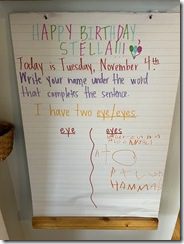 HAPPY BIRTHDAY
STELLA!!!
Today is Tuesday, November 4th.
Write your name under the word
that completes the sentence.
I have two eye/eyes.
eye eyes
HANNAH